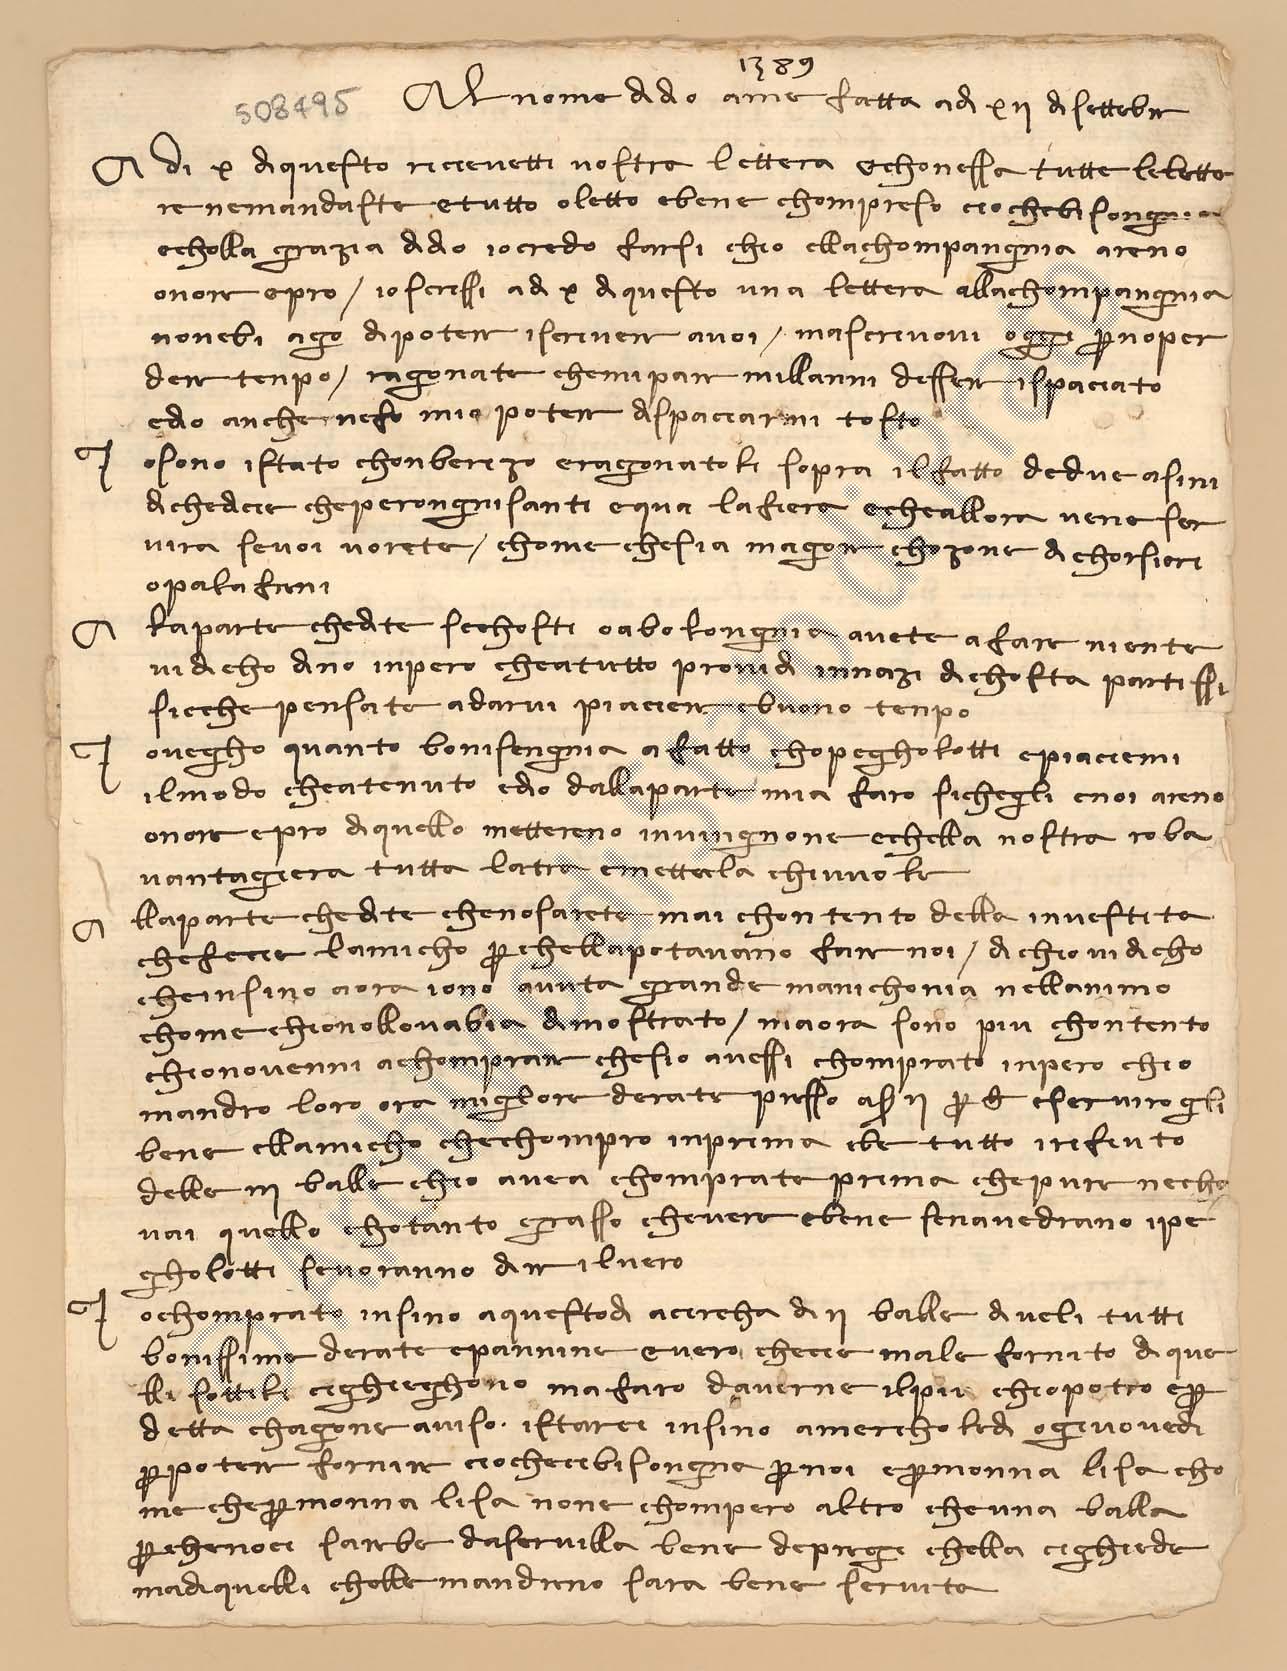 1389
508495
Al nome di dio ame fatta adi xii di settebre
A di x di questo ricievetti vostra lettera e chonessa tutte le lette
re ne mandaste e tutto o letto e bene chompreso cio che bisongnia
e cholla grazia di dio io credo farsi chio ella chompangnia areno
onore e pro / io scrissi a di x di questo una lettera alla chompangnia
non ebi agio di potere iscrivere a voi / ma scrivovi oggi p no per
dere tenpo / ragonate che mi pare mill anni d esser ispaciato
e dio anche ne fo mio potere di spacciarmi tosto
I o sono istato chon berizo e ragonatoli sopra il fatto de due asini
di che dice che per ongnisanti e qua la fiera e che allora vene ser
vira se voi vorete / chome che sia magiore chozone di chorsieri
o palafreni
A la parte che dite se chosti o a bolongnia avete a fare niente
vi dicho di no inpero che a tutto providi innazi di chosta partissi
sicche pensate a darvi piacere e buono tenpo
I o vegho quanto bonisengnia a fatto cho pegholotti e piaciemi
il modo che a tenuto ed io dalla parte mia faro sich egli e noi areno
onore e pro di quello mettereno in vingnone e ch ella nostra roba
vantagiera tutta l atra e mettela chi vuole
A lla parte che dite che no sarete mai chontento della investita
che fecie l amicho p ch ella potavano fare noi / di chio vi dicho
che insino a ora io no avuta grande manichonia nell animo
chome chio no ll ov abia dimostrato / ma ora sono piu chontento
chio no venni a chomprare che s io avessi chomprato inpero chio
mandro loro ora migliore derate presso a s ii p d e servirogli
bene e ll amicho che chompro inprema ebe tutto i refiuto
delle iii balle chio avea chomprate prema che pure ne cha
vai quello cho tanto grasso che vere e bene se n avedrano i pe
gholotti se voranno dire il vero
I o chomprato insino a questo di a cercha di ii balle di veli tutti
bonissime derate e pannine e vero che c e male fornito di que
lli sottili cegheghono ma faro d averne il piu chio potro e p
detta chagone aviso istarci insino a mercholedi o giovovedi
p potere fornire cio che ci bisongna p noi e p monna lisa cho
me che p monna lisa none chompero altro che una balla
p che no ci sarebe da servilla bene de prege ch ella cieghiede
ma di quelli ch elle mandreno sara bene servita